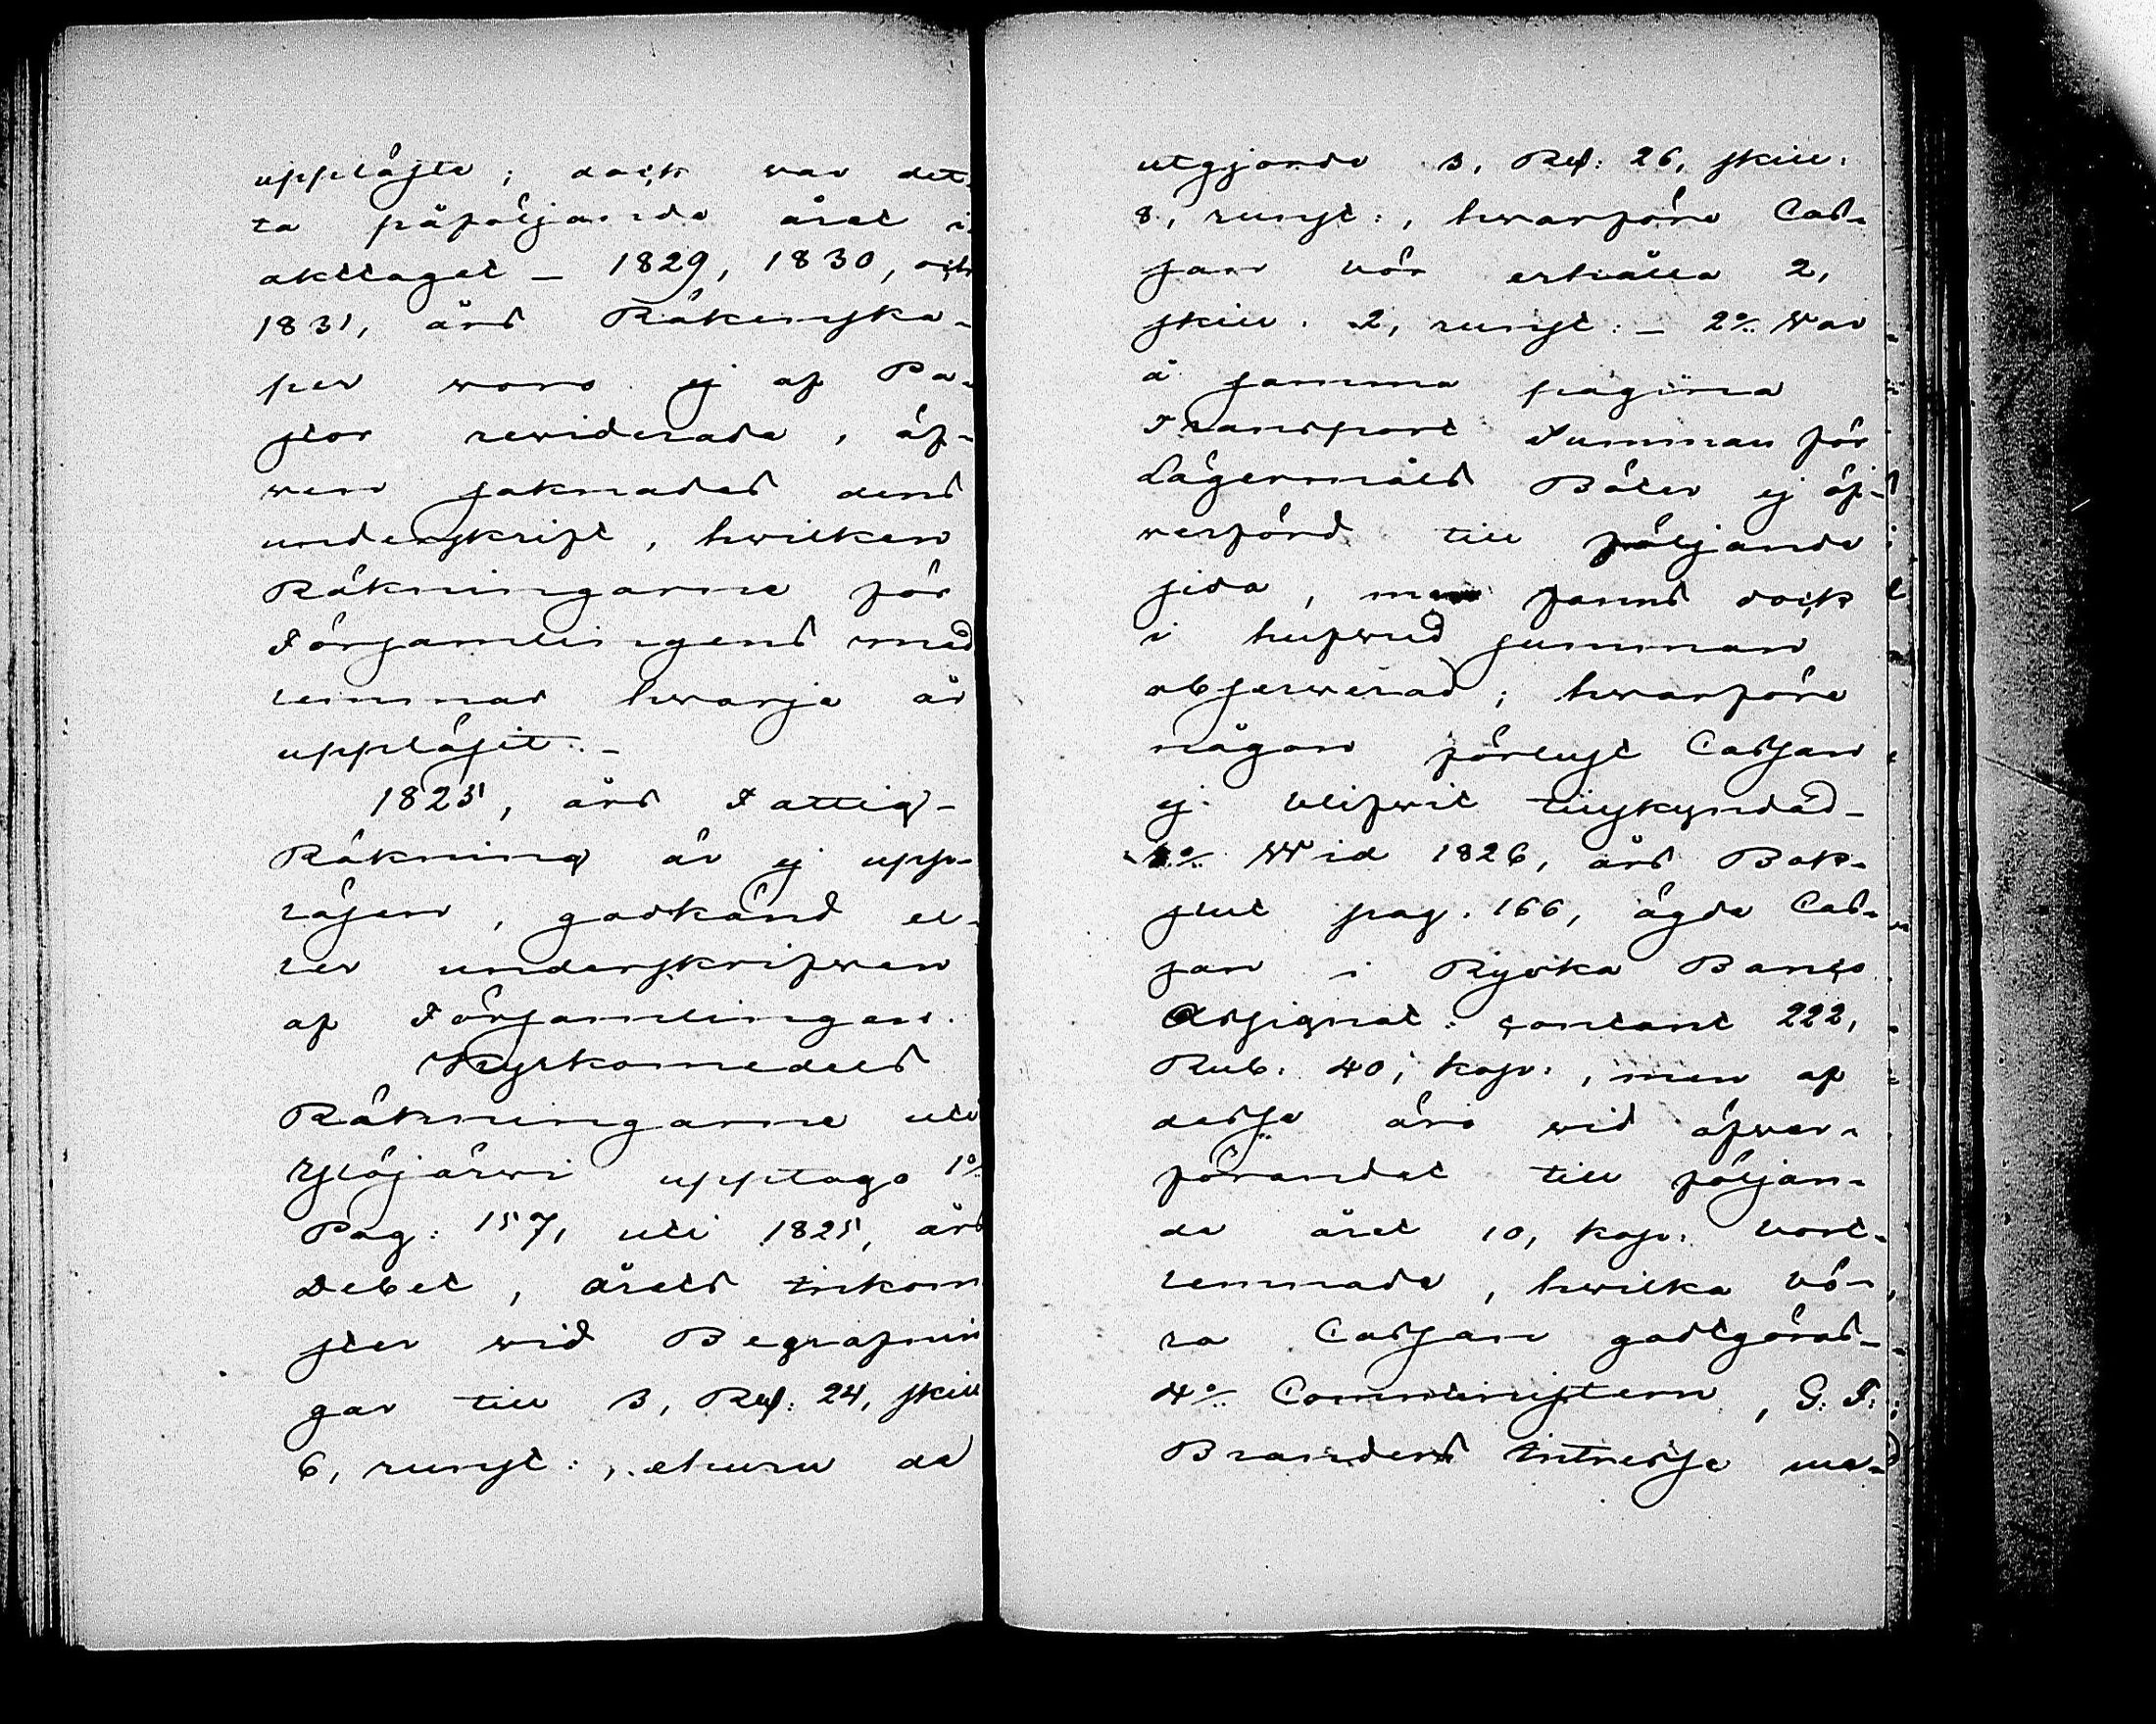 uppläste; dock var det-
ta påföljande året i
akttaget – 1829, 1830, och
1831, års Räkenska-
per voro ej af Pa-
stor reviderade, äf-
ven saknades dens
underskrift, hvilken
Räkningarne för
Församlingens med
lemmar hvarje år
uppläsit. –
1825, års Fattig-
Räkning är ej upp-
läsen, godkänd el-
ler underskrifven
af Församlingen.
Kyrkomedels
Räkningarne uti
Ylöjärvi upptogo 1º
Pag: 157, uti 1825, års
Debet, årets inkom
ster vid Begrafnin
gar till 3, Rd: 24, skill
6, runst:, ehuru de
utgjorde 3, Rd: 26, skill:
8, runst:, hvarföre Cas-
san bör erhålla 2,
skill. 2, runst: – 2º Var
å samma pagina
Transport Summan för
Lägermåls Böter ej öf-
verförd till följande
sida, men fanns dock
i hufvud summan
observerad; hvarföre
någon förlust Cassan
ej blifvit tillskyndad –
Vid 1826, års Bok-
slut pag. 166, ägde Cas-
san i Ryska Banco
Assignat: contant 222,
Rub. 40, kop:, men af
desse äro vid öfver-
förandet till följan-
de året 10, kop: bort-
lemnade, hvilka bö-
ra Cassan godtgöras –
4º Comministern, G. F.
Branders intresse me-